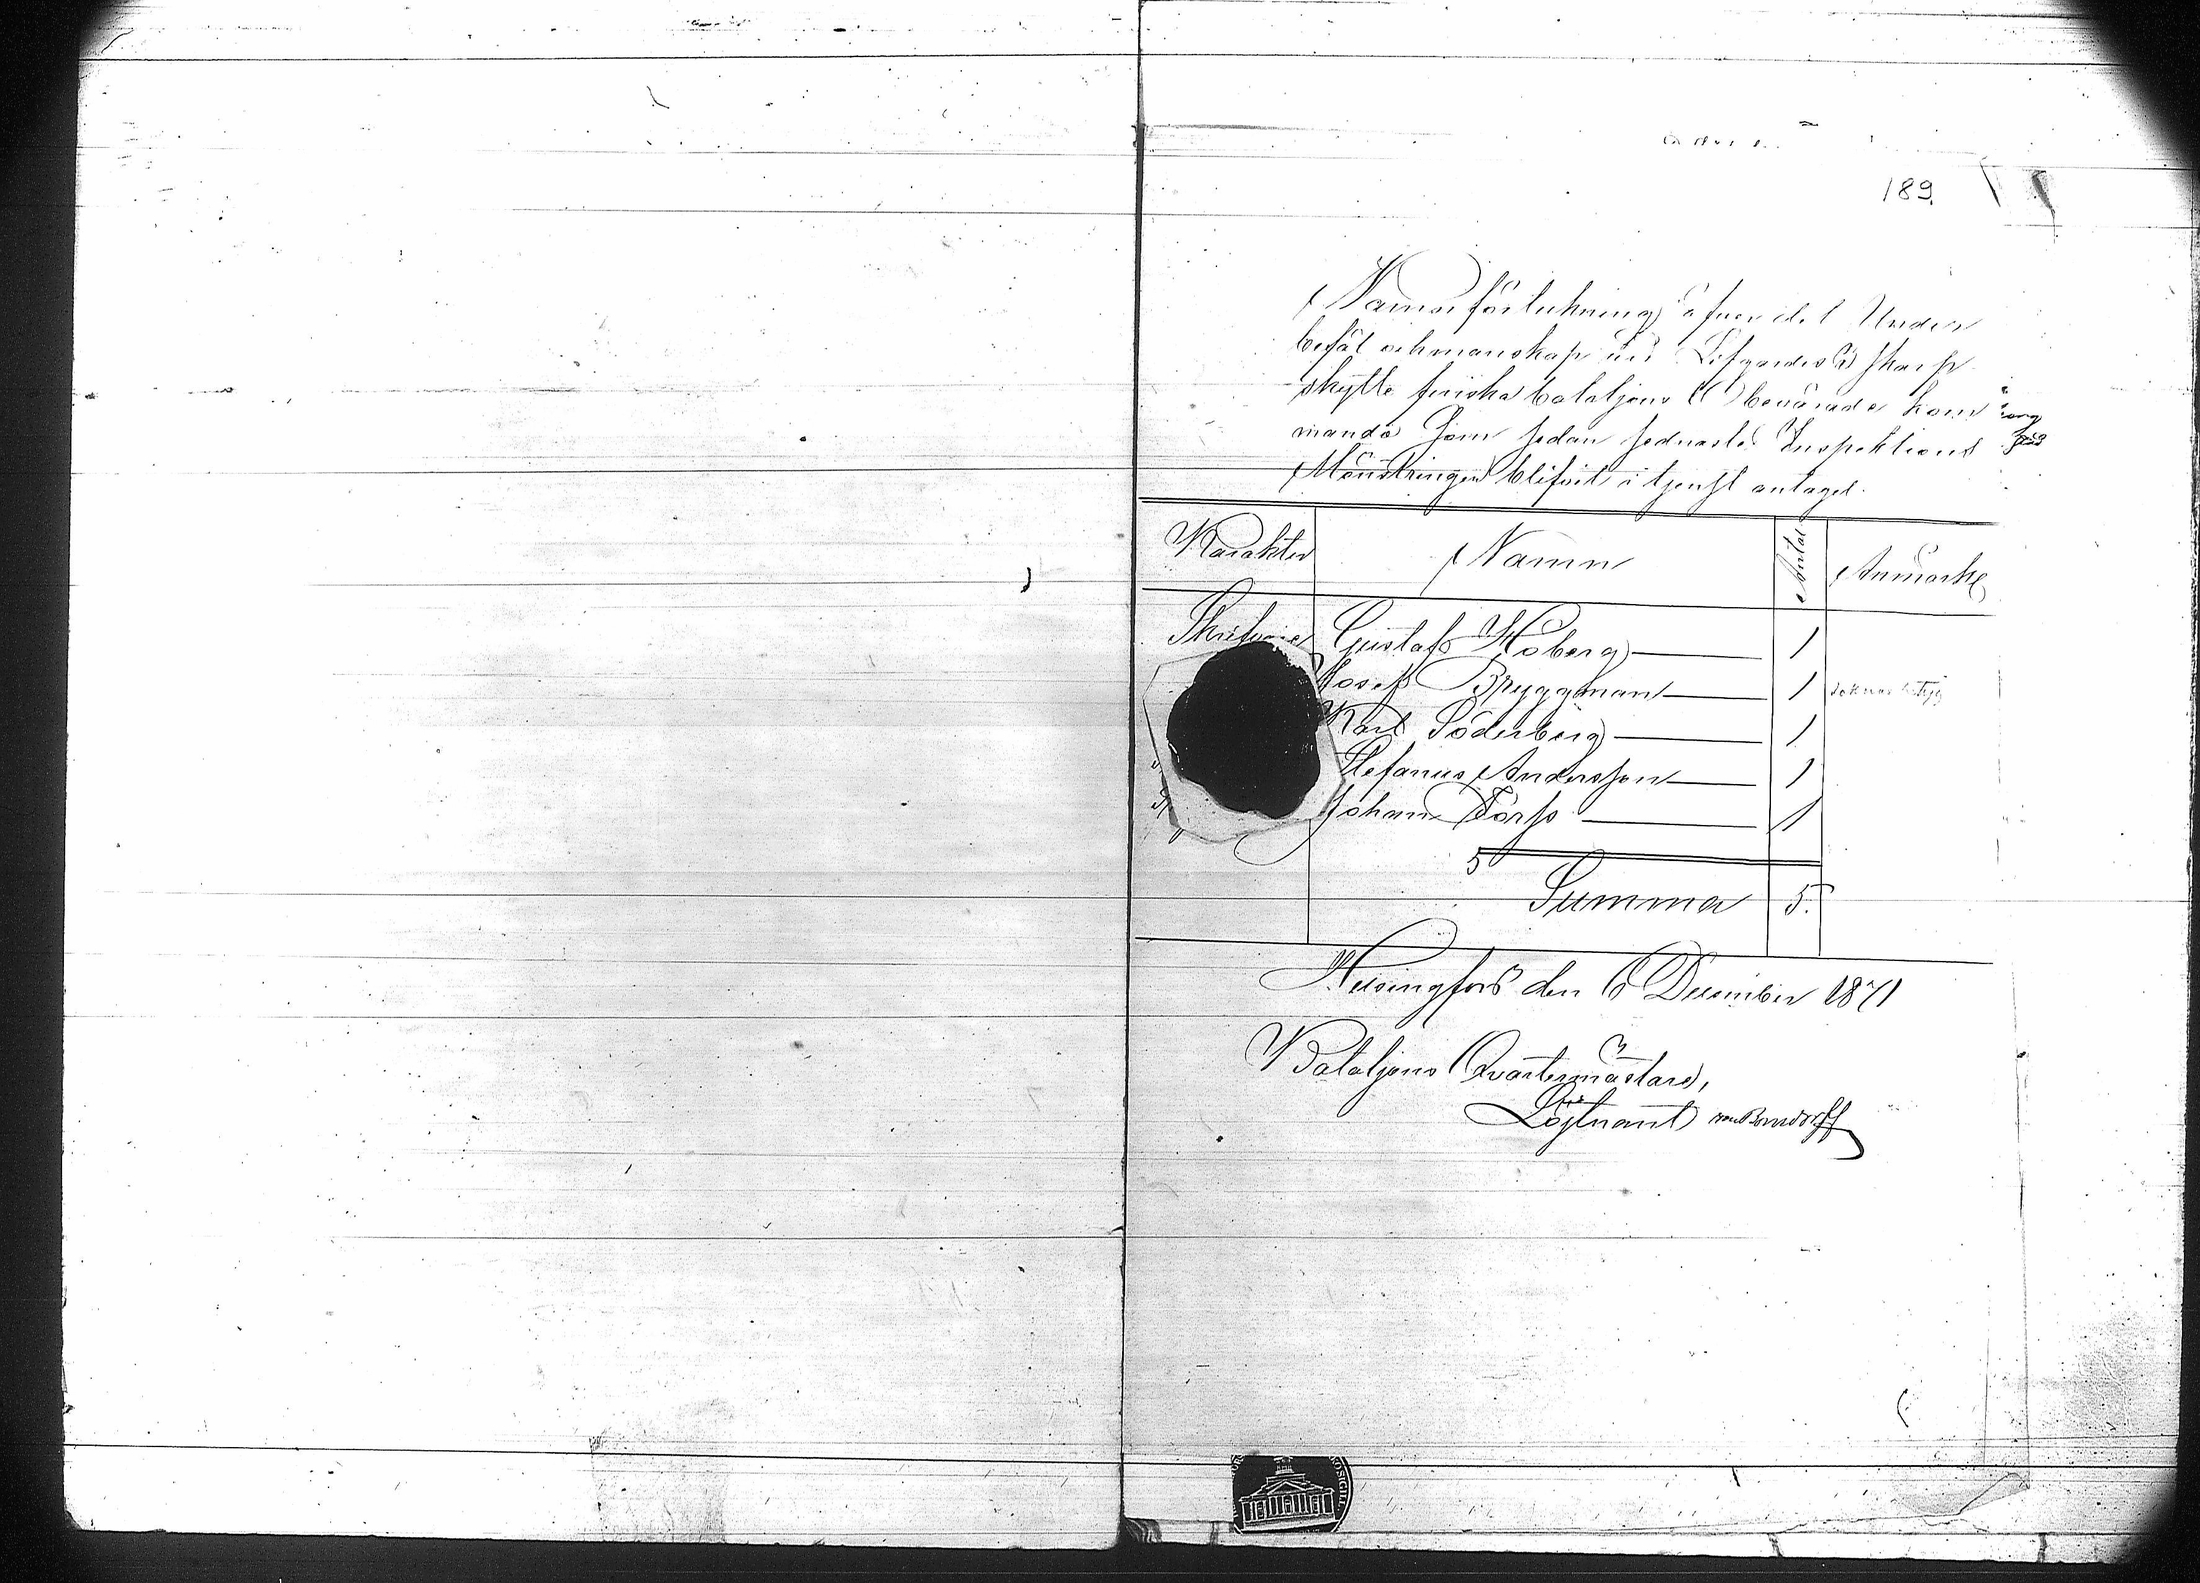 189
Namnförtekning öfver det Under
befäl och manskap vid Lifgardes 3 Skarp
skytte finska bataljons Obevärade kom
mando som sedan sednaste Inspektions
Mönstringen blifvit i tjenst antaget.
Karakter Namn Antal Anmärk
Skrifvare Gustaf Hoberg 1
Josef Bryggman 1
Karl Söderberg 1
Stefanus Andersson 1
Johan Fors 1
5
Summa 5.
Helsingfors den 6 December 1871
Bataljons Qvartermästare,
Löjtnant von Bonsdorff